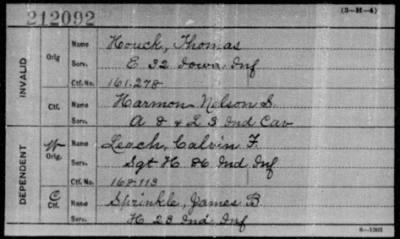 212092 (3-H-4)
INVALID
Orig Name Houck, Thomas
Serv. E 32 Iowa Inf
Ctf. No. 161,278
Ctf. Name Harmon Nelson S.
Serv. A & L 3 Ind Cav
DEPENDENT
W Orig. Name Leach, Calvin F.
Serv. Sgt H 86 Ind Inf
Ctf. No. 168-113
C Ctf. Name Sprinkle, James B
Serv. H 23 Ind Inf